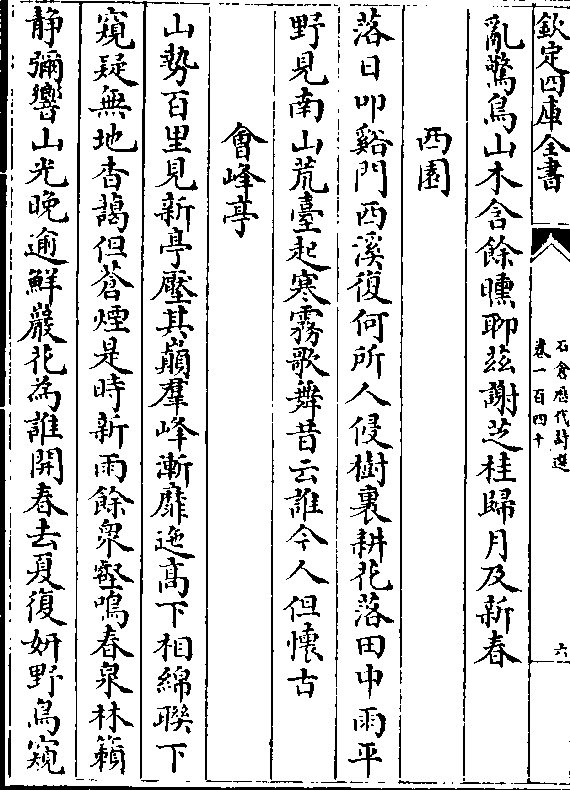 欽定四庫全書
石倉歷代詩選
卷一百四十
六
亂驚鳥山木含餘曛聊兹謝芝桂歸月及新春
西園
落日叩谿門西溪復何所人侵樹裏耕花落田中雨平
野見南山荒臺起寒霧歌舞昔云誰今人但懷古
會峰亭
山勢百里見新亭壓其巔羣峰漸靡迤高下相綿聯下
窺疑無地杳藹但蒼煙是時新雨餘衆壑鳴春泉林籟
静彌響山光晚逾鮮巖花為誰開春去夏復妍野鳥窺